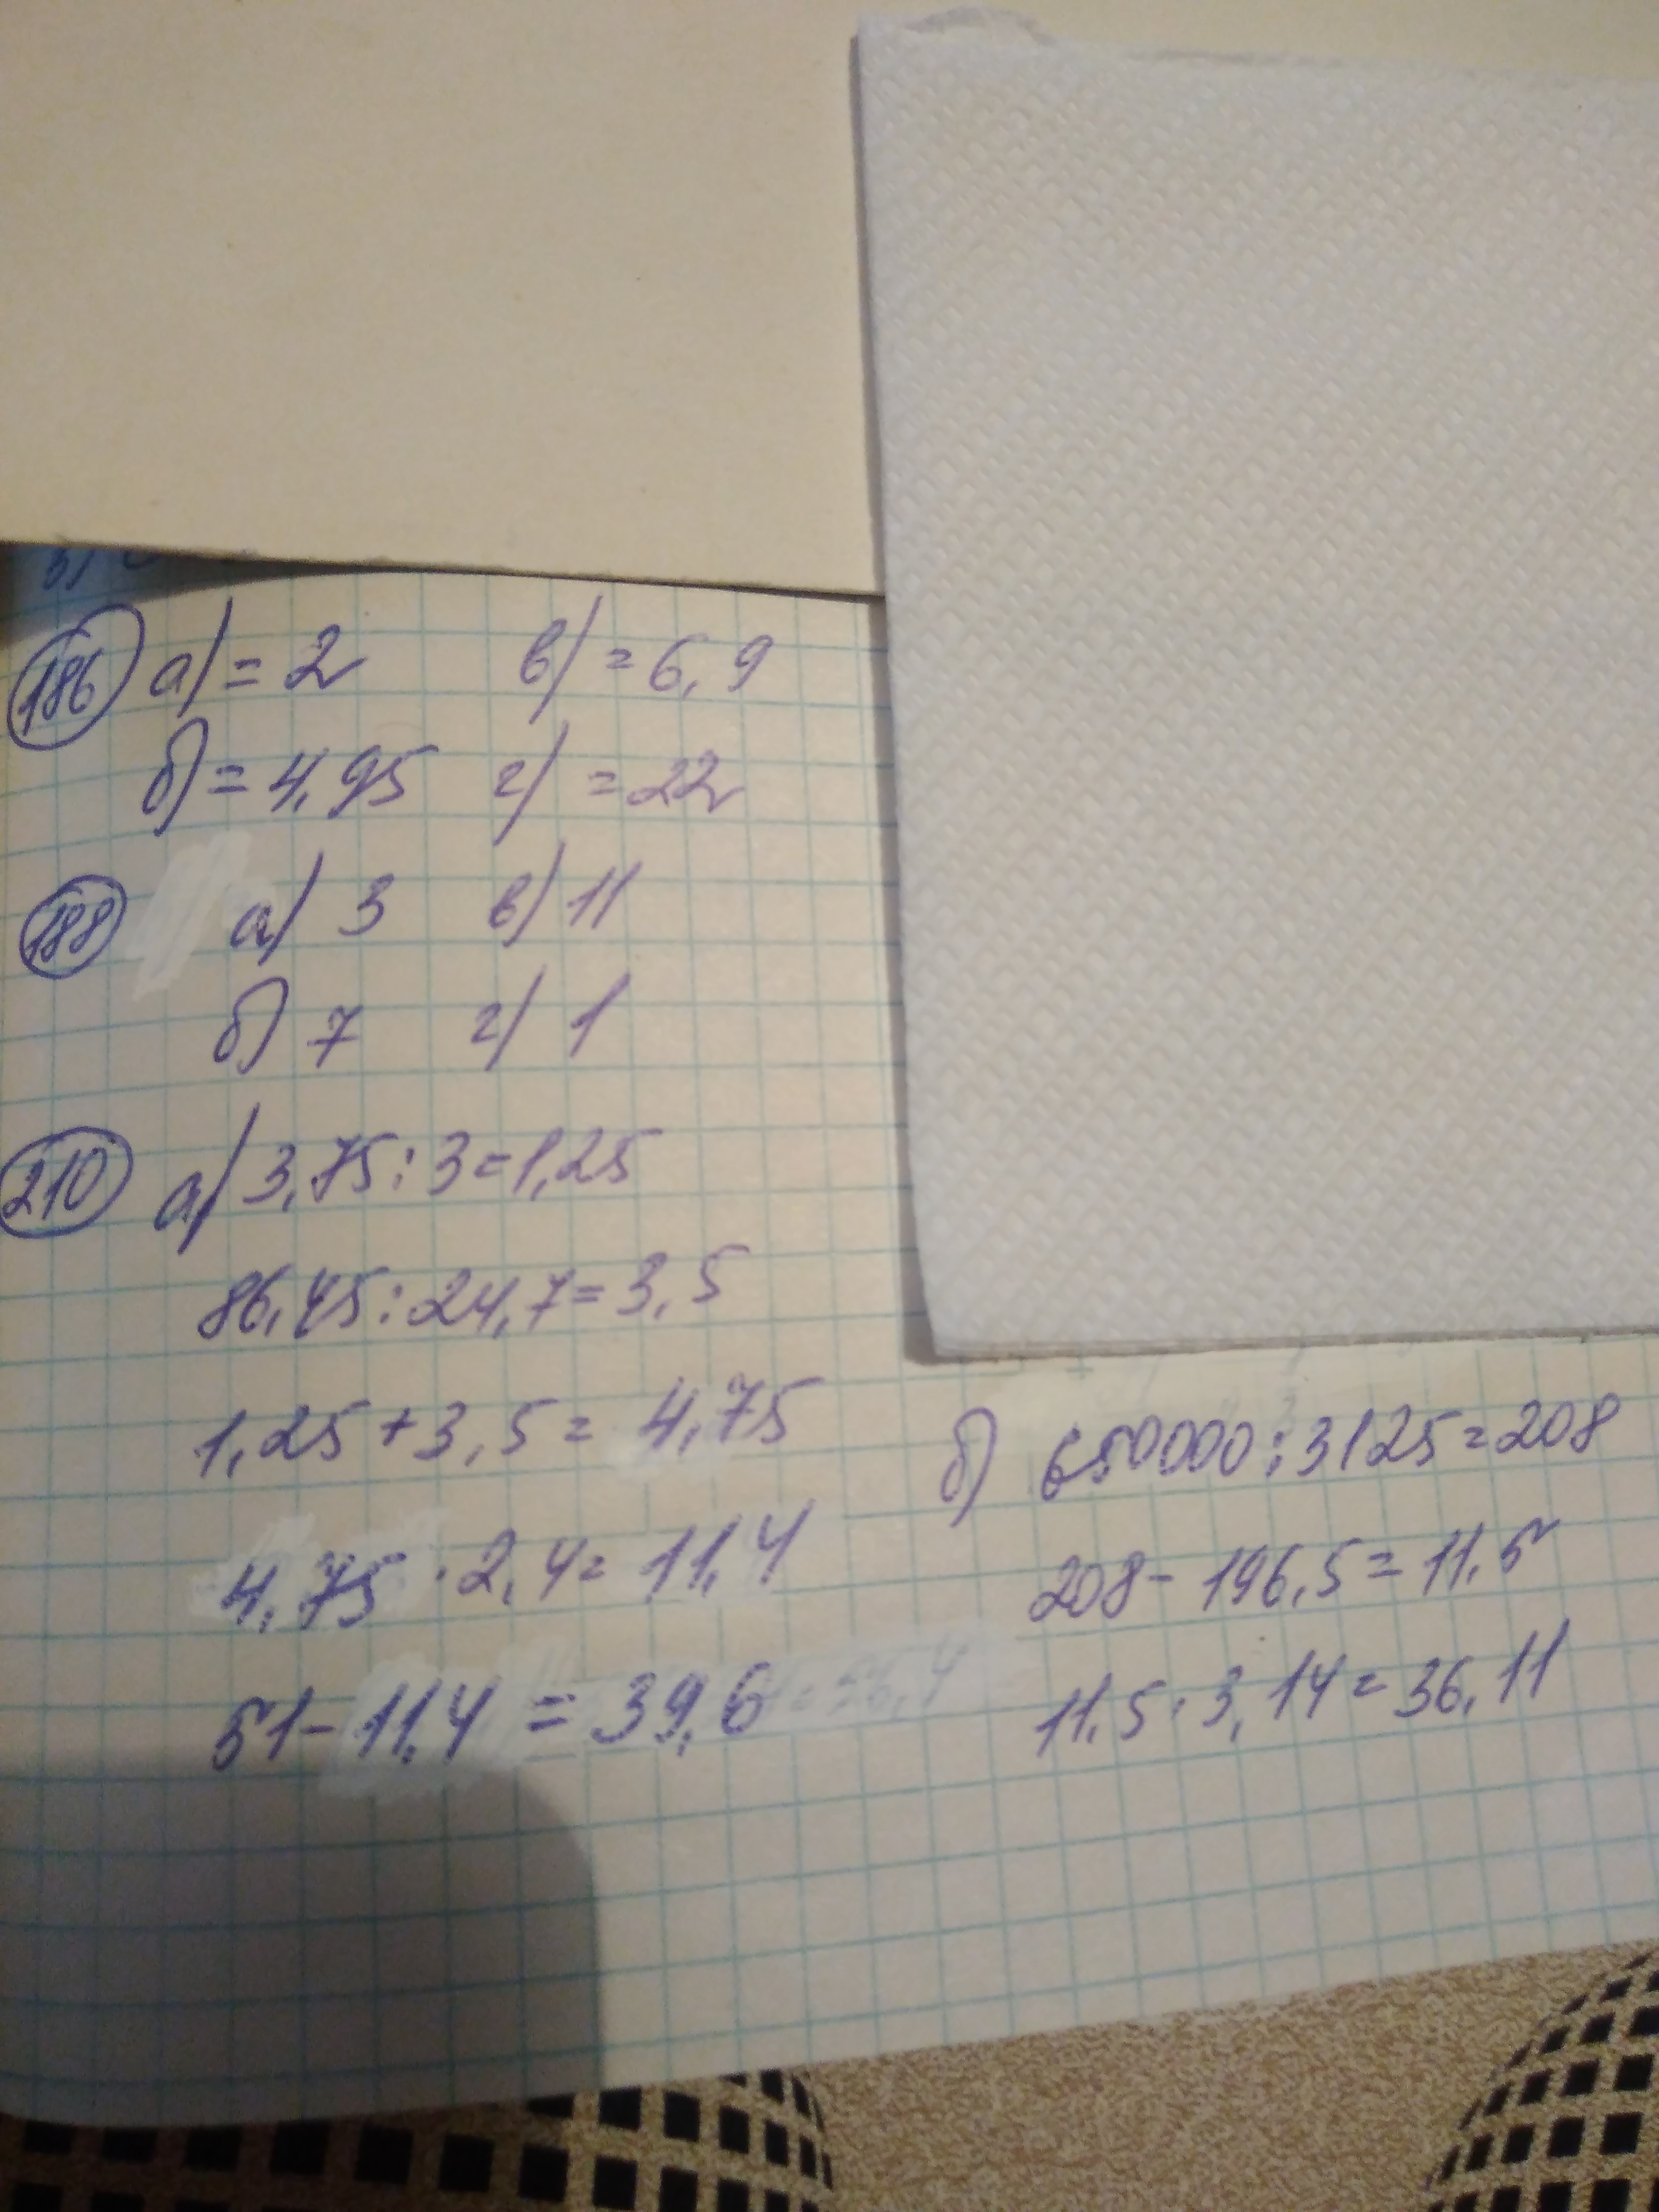 186 а) = 2 в) = 6,9
б) = 4,95 г) = 22
188 а) 3 в) 11
б) 7 г) 1
210 а) 3,75 : 3 = 1,25
86,45 : 24,7 = 3,5
1,25 + 3,5 = 4,75
4,75 · 2,4 = 11,4
51 - 11,4 = 39,6
б) 650000 : 3125 = 208
208 - 196,5 = 11,5
11,5 · 3,14 = 36,11